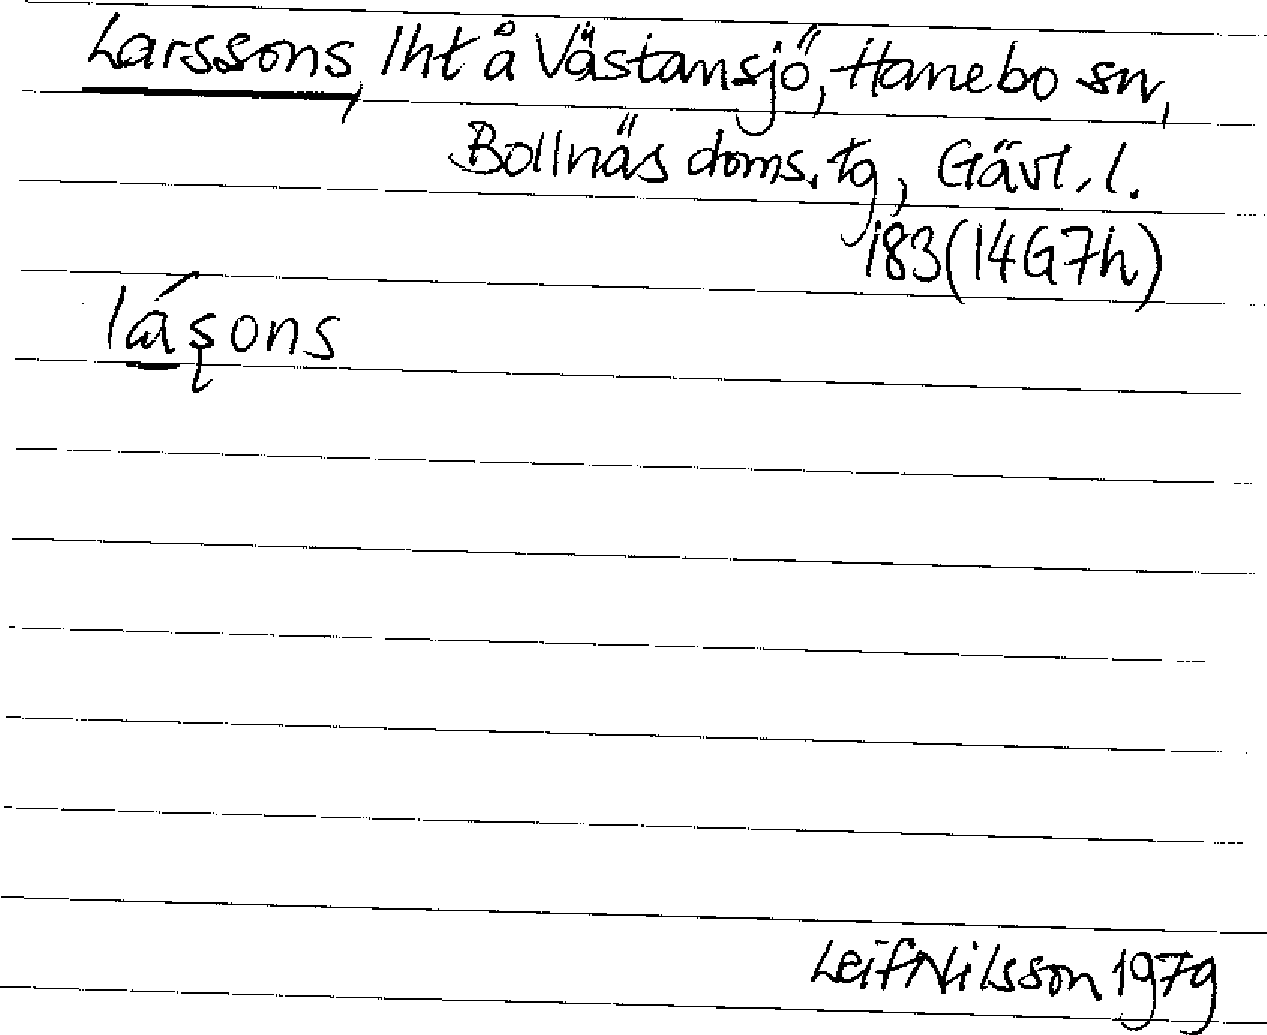 Larssons, lht å Västansjö, Hanebo sn,
Bollnäs doms.tg, Gävl.l.
183(14G7h)
lásons
Leif Nilsson 1979